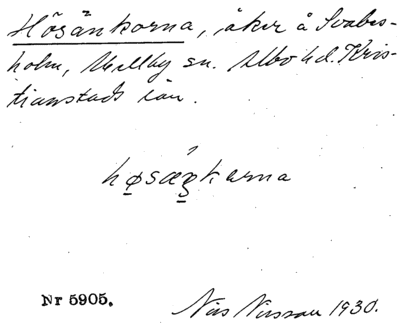 Hösänkorna, åker å Svabes-
holm, Mellby sn. Albo hd. Kris-
tianstads län.
høsæŋkarna
Nr 5905.
Nils Nilsson 1930.